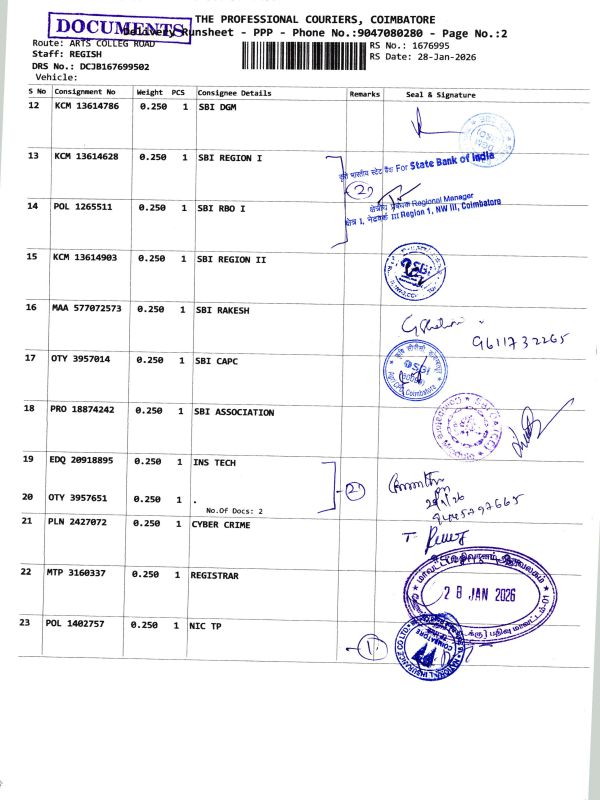 DOCUMENTS
THE PROFESSIONAL COURIERS, COIMBATORE
Delivery Runsheet - PPP - Phone No.:9047080280 - Page No.:2
Route: ARTS COLLEG ROAD
Staff: REGISH
DRS No.: DCJB167699502
Vehicle:
RS No.: 1676995
RS Date: 28-Jan-2026
S No Consignment No Weight PCS Consignee Details Remarks Seal & Signature
12 KCM 13614786 0.250 1 SBI DGM
13 KCM 13614628 0.250 1 SBI REGION I
कृते भारतीय स्टेट बैंक For State Bank of India
2
क्षेत्रीय प्रबंधक Regional Manager
Region 1, NW III, Coimbatore
14 POL 1265511 0.250 1 SBI RBO I
15 KCM 13614903 0.250 1 SBI REGION II
SBI
16 MAA 577072573 0.250 1 SBI RAKESH
9611732265
17 OTY 3957014 0.250 1 SBI CAPC
Coimbatore
18 PRO 18874242 0.250 1 SBI ASSOCIATION
19 EDQ 20918895 0.250 1 INS TECH
2
20 OTY 3957651 0.250 1 .
No.Of Docs: 2
21 PLN 2427072 0.250 1 CYBER CRIME
22 MTP 3160337 0.250 1 REGISTRAR
28 JAN 2026
23 POL 1402757 0.250 1 NIC TP
1
NATIONAL INSURANCE CO LTD
COIMBATORE